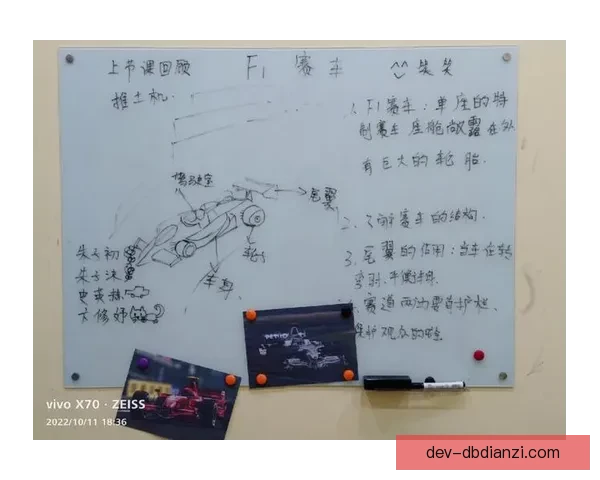 上节课回顾
F1 赛车
笑笑
推土机.
1. F1赛车：单座的特
制赛车 座舱敞露在外
有巨大的轮胎.
驾驶室
尾翼
轮子
车身
2. 了解赛车的结构.
3. 尾翼的作用：当车在转
弯时.平衡车体.
赛道两边要有护栏.
保护观众的
朱子初
朱子沫
史
vivo X70 · ZEISS
2022/10/11 18:36
dev-dbdianzi.com